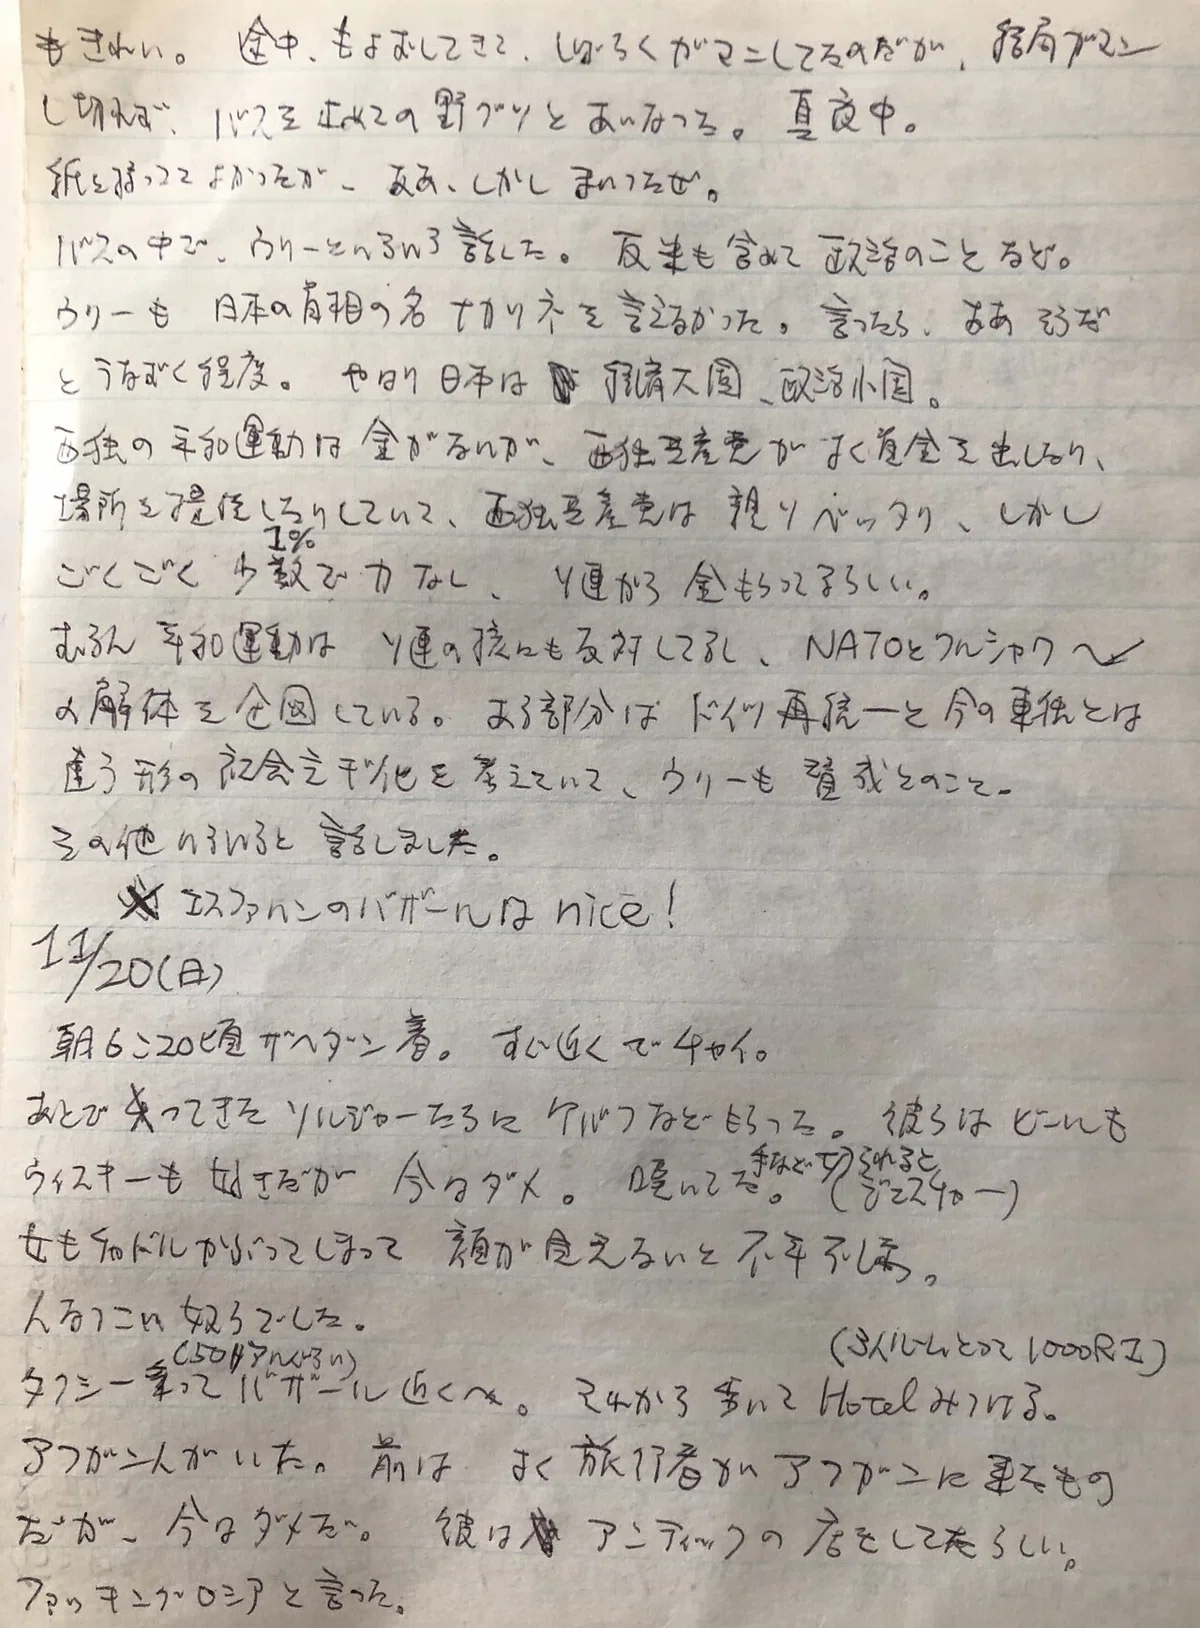 もきれい。 途中、もよおしてきて、しばらくガマンしてたのだが、結局ガマン
し切れず、バスを止めての野グソとあいなった。 真夜中。
紙を持っててよかったが、ああ、しかしまいったぜ。
バスの中で、ウリーといろいろ話した。 反米も含めて政治のことなど。
ウリーも日本の首相の名ナカソネを言えなかった。 言ったら、ああそうだ
とうなずく程度。 やはり日本は 経済大国、政治小国。
西独の平和運動は金がないが、西独共産党がよく資金を出したり、
場所を提供したりしていて、西独共産党は親ソベッタリ、しかし
1%
ごくごく少数で力なし、ソ連から金もらってるらしい。
むろん平和運動はソ連の核にも反対してるし、NATOとワルシャワ
の解体を企図している。 ある部分はドイツ再統一と今の東独とは
違う形の社会主義化を考えていて、ウリーも賛成とのこと。
その他いろいろと話しました。
エスファハンのバザールは nice!
11/20(日)
朝6:20頃ザヘダン着。 すぐ近くでチャイ。
あとで乗ってきたソルジャーたちにケバブなどもらった。 彼らはビールも
手など切られると
ウィスキーも好きだが今はダメ。 嘆いてた。 (ジェスチャー)
女もチャドルかぶってしまって顔が見えないと不平不満。
人なつこい奴らでした。
(50リアルぐらい) (3人ルームとって1000RI)
タクシー乗ってバザール近くへ。 それから歩いてHotelみつける。
アフガン人がいた。 前はよく旅行者がアフガンに来たもの
だが、今はダメだ。 彼は アンティックの店をしてたらしい。
ファッキングロシアと言った。